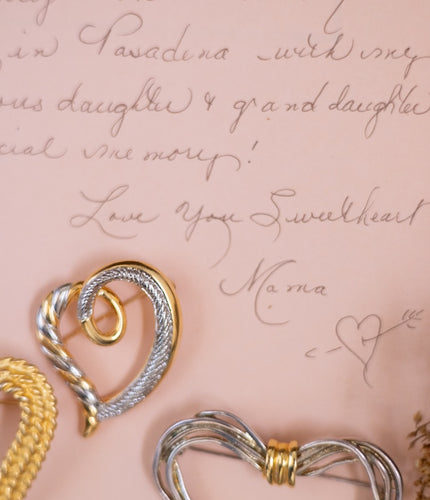 in Pasadena with my
ous daughter & grand daughter
cial memory!
Love You Sweetheart
Mama